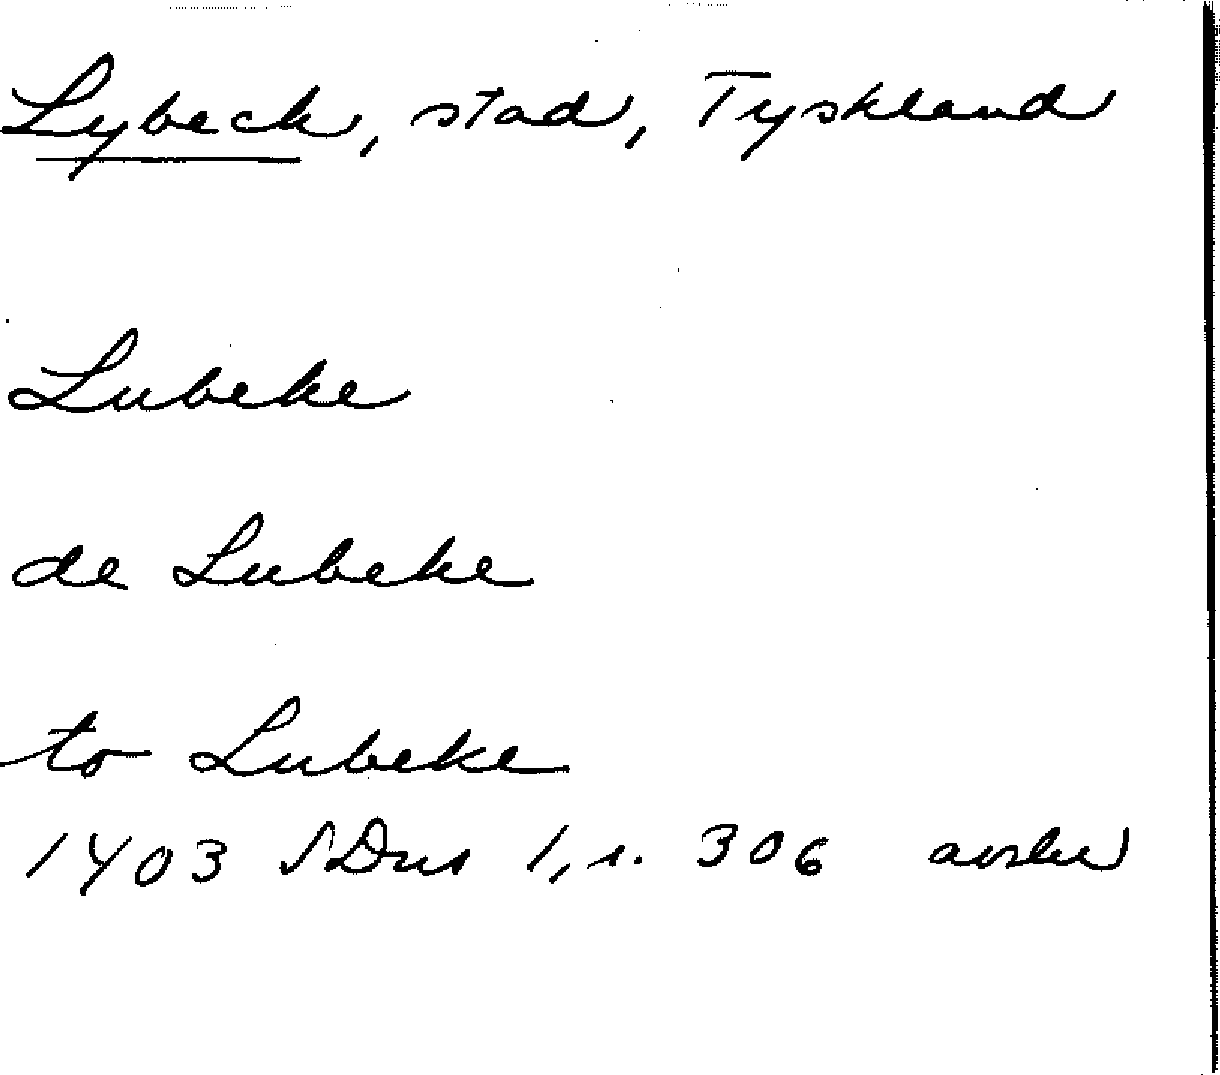 Lybeck, stad, Tyskland
Lubeke
de Lubeke
to Lubeke
1403 SDns 1, s. 306 avskr